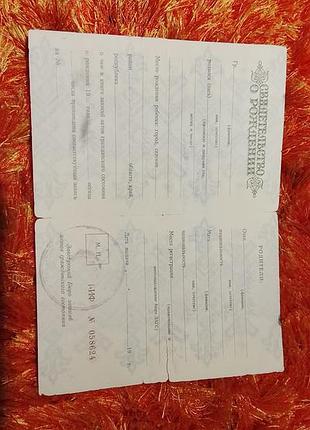 СВИДЕТЕЛЬСТВО
О РОЖДЕНИИ
Гр.
(фамилия,
имя, отчество)
родился (лась)
(прописью и цифрами год,
месяц и число)
Место рождения ребенка: город, селение
район
область, край
республика
о чем в книге записей актов гражданского состояния
о рождении 19
года
месяца
числа произведена соответствующая запись
за №
РОДИТЕЛИ:
Отец
(фамилия,
имя, отчество)
национальность
Мать
(фамилия,
имя, отчество)
национальность
Место регистрации
бюро ЗАГС)
Дата выдачи
19
г.
М. П.
Заведующий бюро записей
актов гражданского состояния
№ 058624